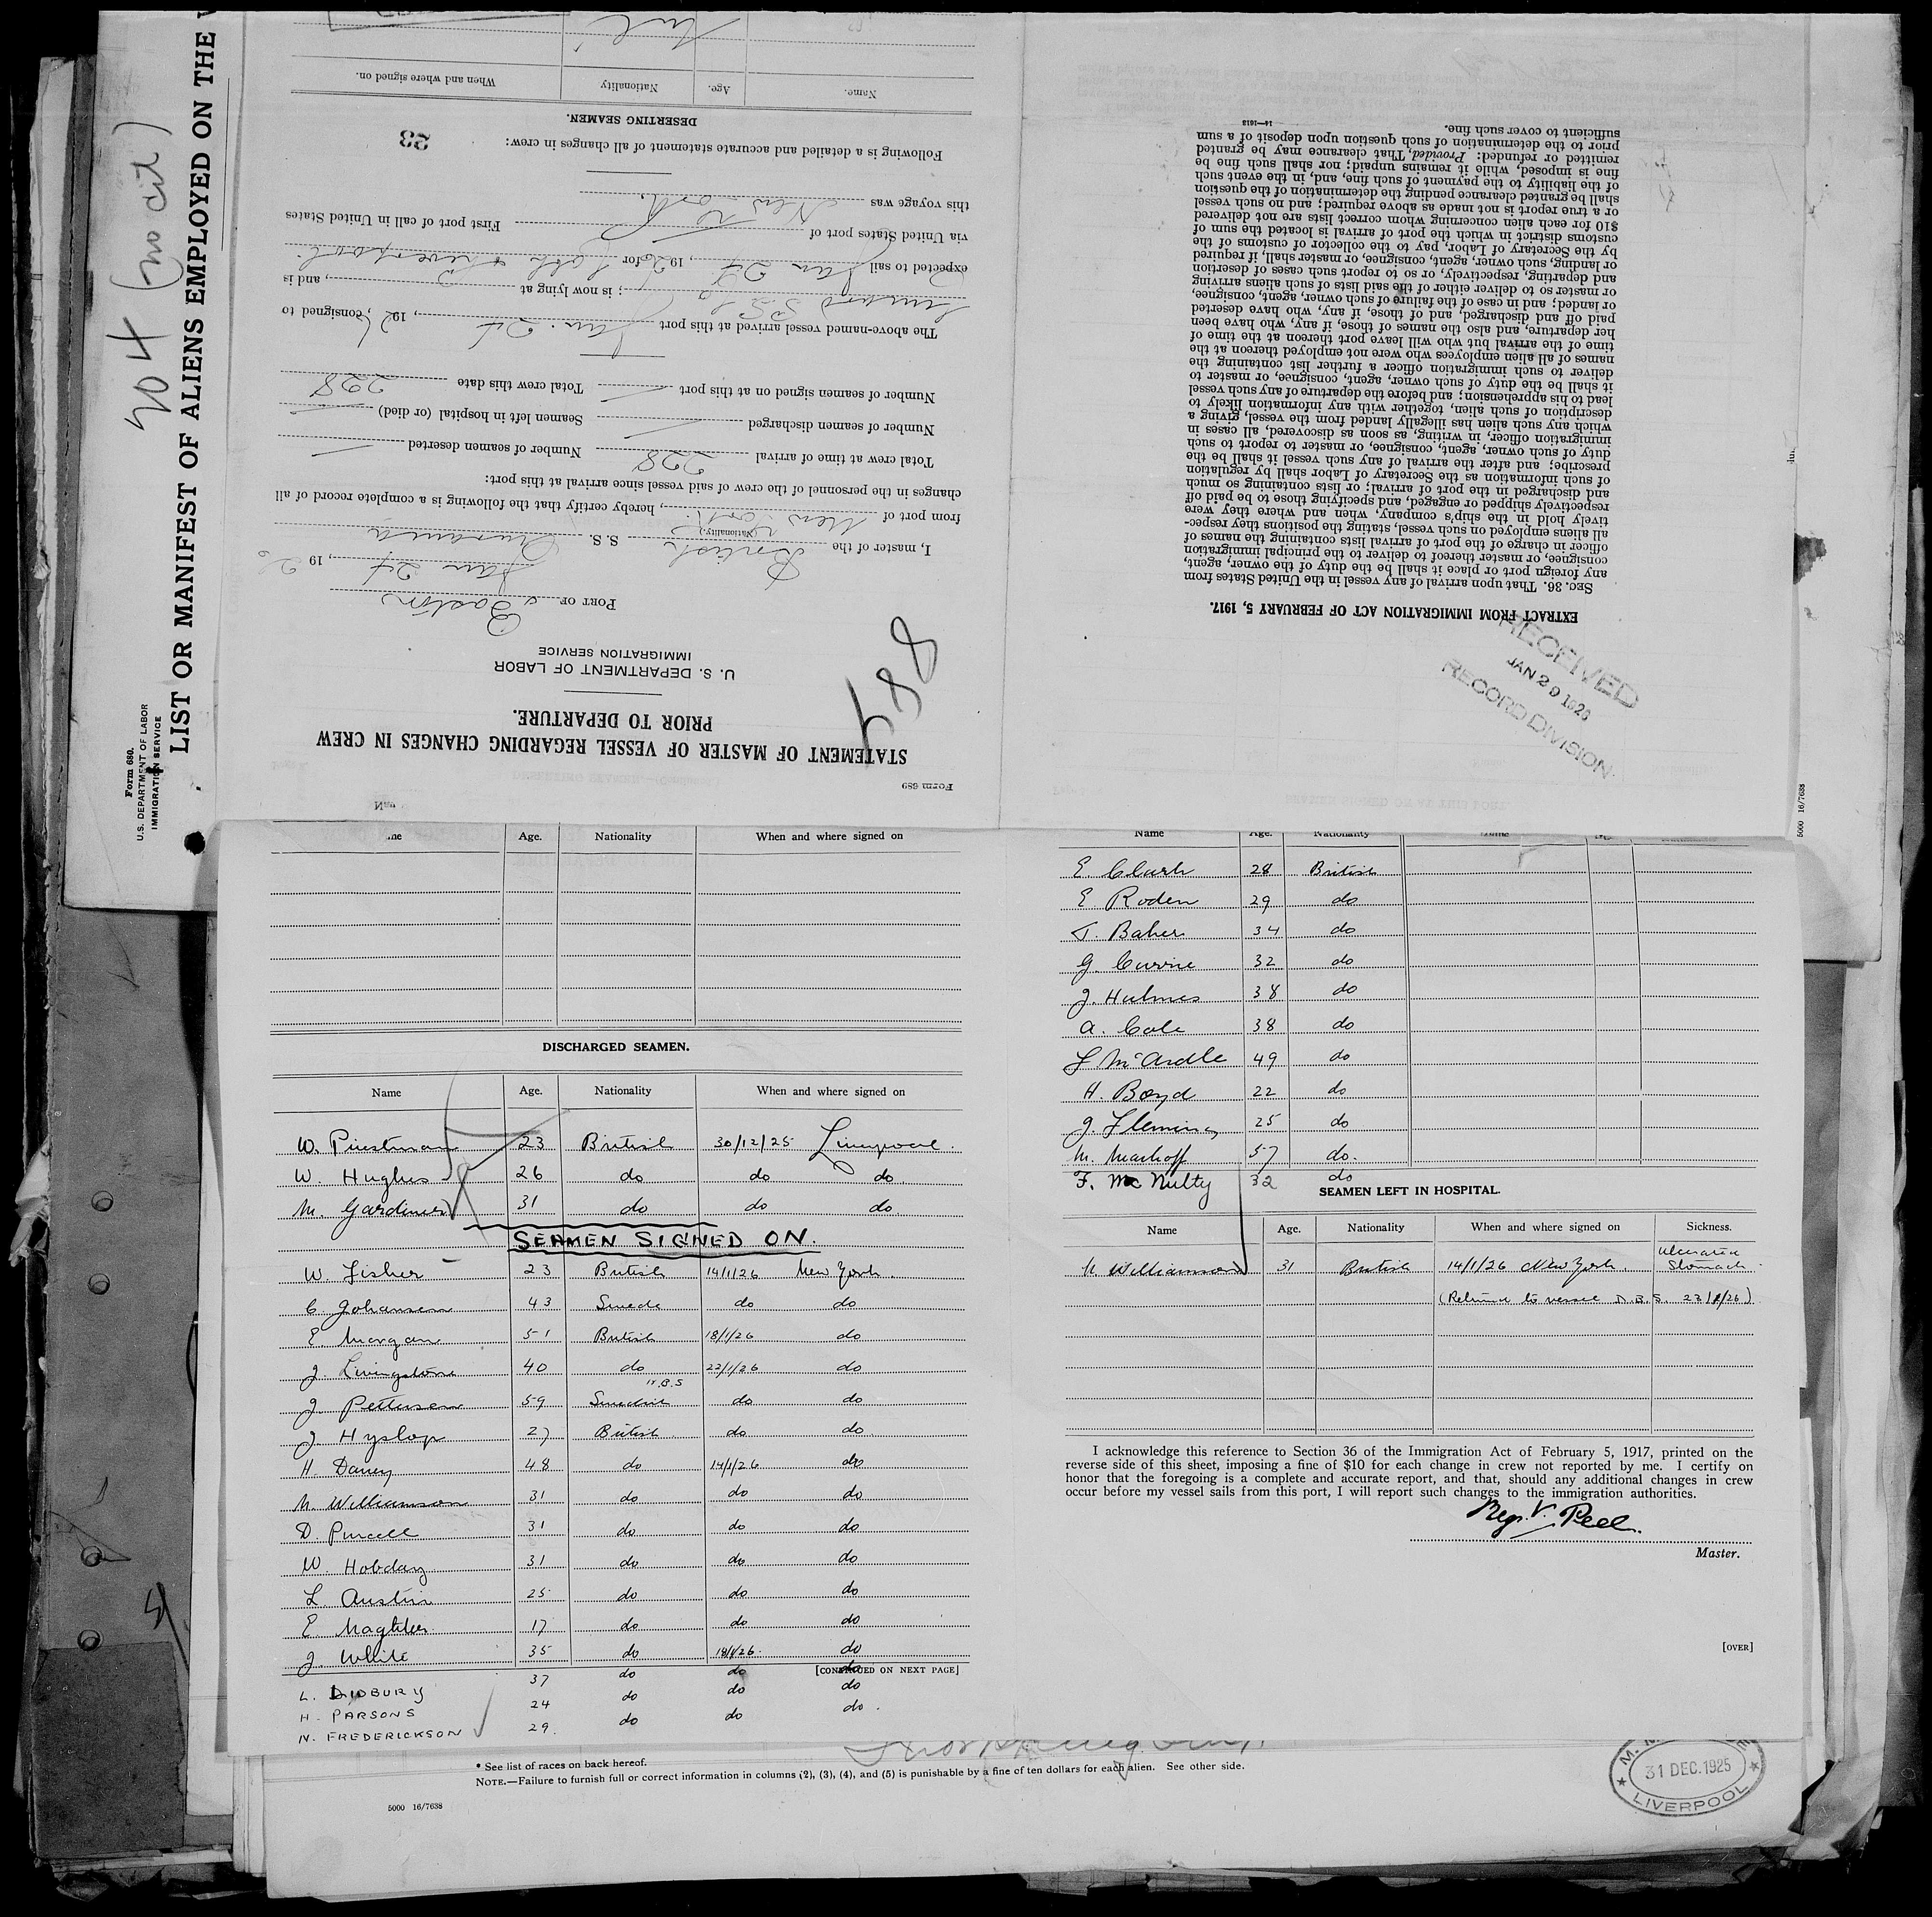 404 (no cit)
Form 680.
U.S. DEPARTMENT OF LABOR
IMMIGRATION SERVICE
LIST OR MANIFEST OF ALIENS EMPLOYED ON THE
Form 689
STATEMENT OF MASTER OF VESSEL REGARDING CHANGES IN CREW
PRIOR TO DEPARTURE.
U. S. DEPARTMENT OF LABOR
IMMIGRATION SERVICE
PORT OF Boston
Jan 24, 1926
I, master of the British S. S.
(Nationality.)
from port of New York, hereby certify that the following is a complete record of all
changes in the personnel of the crew of said vessel since arrival at this port:
Total crew at time of arrival 228 Number of seamen deserted —
Number of seamen discharged — Seamen left in hospital (or died) —
Number of seamen signed on at this port — Total crew this date 228
The above-named vessel arrived at this port Jan. 24, 1926, consigned to
Cunard SS Co; is now lying at, and is
expected to sail Jan 24, 1926 for Cobh & Liverpool
via United States port of — First port of call in United States
this voyage was New York.
Following is a detailed and accurate statement of all changes in crew:
23
DESERTING SEAMEN.
Name. Age. Nationality When and where signed on.
EXTRACT FROM IMMIGRATION ACT OF FEBRUARY 5, 1917.
SEC. 36. That upon arrival of any vessel in the United States from
any foreign port or place it shall be the duty of the owner, agent,
consignee, or master thereof to deliver to the principal immigration
officer in charge of the port of arrival lists containing the names of
all aliens employed on such vessel, stating the positions they respec-
tively hold in the ship's company, when and where they were
respectively shipped or engaged, and specifying those to be paid off
and discharged in the port of arrival; or lists containing so much
of such information as the Secretary of Labor shall by regulation
prescribe; and after the arrival of any such vessel it shall be the
duty of such owner, agent, consignee, or master to report to such
immigration officer, in writing, as soon as discovered, all cases in
which any such alien has illegally landed from the vessel, giving a
description of such alien, together with any information likely to
lead to his apprehension; and before the departure of any such vessel
it shall be the duty of such owner, agent, consignee, or master to
deliver to such immigration officer a further list containing the
names of all alien employees who were not employed thereon at the
time of the arrival but who will leave port thereon at the time of
her departure, and also the names of those, if any, who have been
paid off and discharged, and of those, if any, who have deserted
or landed; and in case of the failure of such owner, agent, consignee,
or master so to deliver either of the said lists of such aliens arriving
and departing, respectively, or so to report such cases of desertion
or landing, such owner, agent, consignee, or master shall, if required
by the Secretary of Labor, pay to the collector of customs of the
customs district in which the port of arrival is located the sum of
$10 for each alien concerning whom correct lists are not delivered
or a true report is not made as above required; and no such vessel
shall be granted clearance pending the determination of the question
of the liability to the payment of such fine, and, in the event such
fine is imposed, while it remains unpaid; nor shall such fine be
remitted or refunded: Provided, That clearance may be granted
prior to the determination of such question upon deposit of a sum
sufficient to cover such fine.
14—1613
RECEIVED
JAN 29 1926
RECORD DIVISION
5000 16/7638
Age. Nationality When and where signed on
DISCHARGED SEAMEN.
Name Age. Nationality When and where signed on
W. Priestman 23 British 30/12/25 Liverpool.
W. Hughes 26 do do do.
M. Gardiner 31 do do do.
SEAMEN SIGNED ON.
W. Fisher 23 British 14/1/26 New York.
C. Johansen 43 Swede do do
E. Morgan 51 British 18/1/26 do
J. Livingstone 40 do 22/1/26 do
J. Pettersen 59 Swedish do do
J. Hyslop 27 British do do.
H. Davey 48 do 14/1/26 do
N. Williamson 31 do do do
D. Purcell 31 do do do
W. Hobday 31 do do do
L. Austin 25 do do do
E. 17 do do do
J. White 35 do 18/1/26. do
[CONTINUED ON NEXT PAGE]
L. DIDBURY 37 do do do
H. PARSONS 24 do do do
N. FREDERICKSON 29. do do do.
Name Age. Nationality
E. Clark 28 British
E Roden 29 do
T. Baker 34 do
G. Currie 32 do
J. Hulmes 38 do
A. Cole 38 do
J McArdle 49 do
H. Boyd 22 do
J. Fleming 25 do
M. Markoff 57 do.
F. McNulty 32 do
SEAMEN LEFT IN HOSPITAL.
Name Age. Nationality When and where signed on Sickness.
N. Williamson 31 British 14/1/26 New York. Ulcerated Stomach.
(Returned to vessel D.B.S. 23/1/26)
I acknowledge this reference to Section 36 of the Immigration Act of February 5, 1917, printed on the
reverse side of this sheet, imposing a fine of $10 for each change in crew not reported by me. I certify on
honor that the foregoing is a complete and accurate report, and that, should any additional changes in crew
occur before my vessel sails from this port, I will report such changes to the immigration authorities.
Reg. V. Peel.
Master.
[OVER]
* See list of races on back hereof.
NOTE.—Failure to furnish full or correct information in columns (2), (3), (4), and (5) is punishable by a fine of ten dollars for each alien. See other side.
5000 16/7638
31 DEC.1925
LIVERPOOL